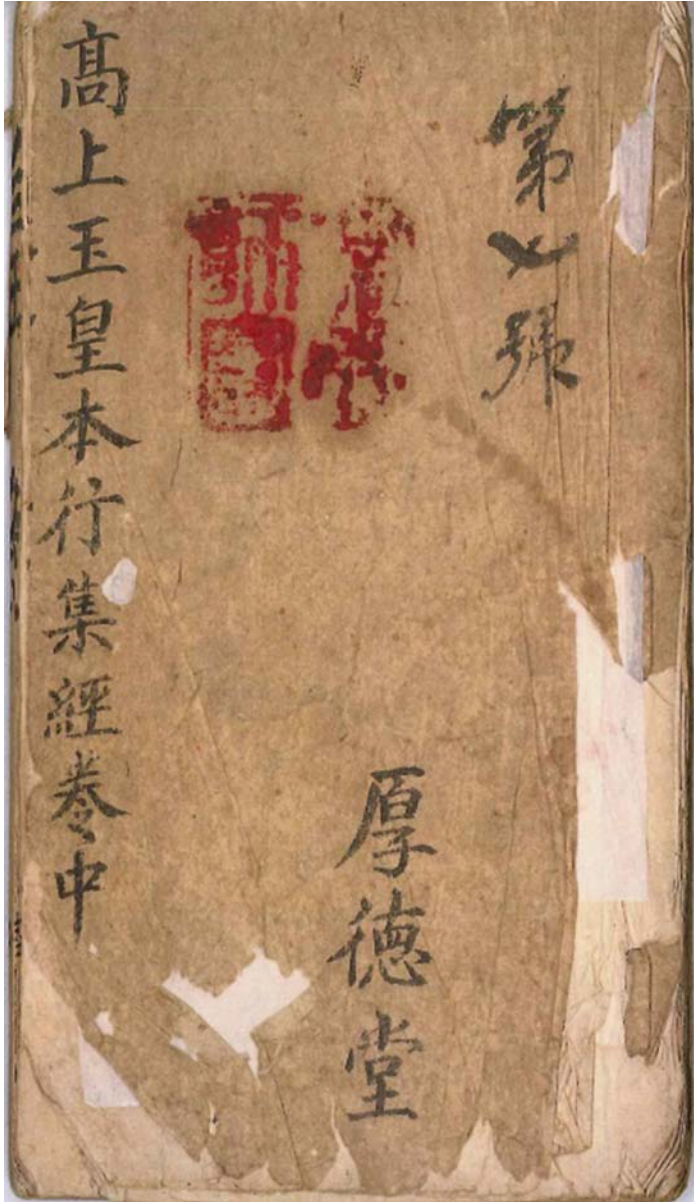 第七號
厚德堂
高上玉皇本行集經卷中